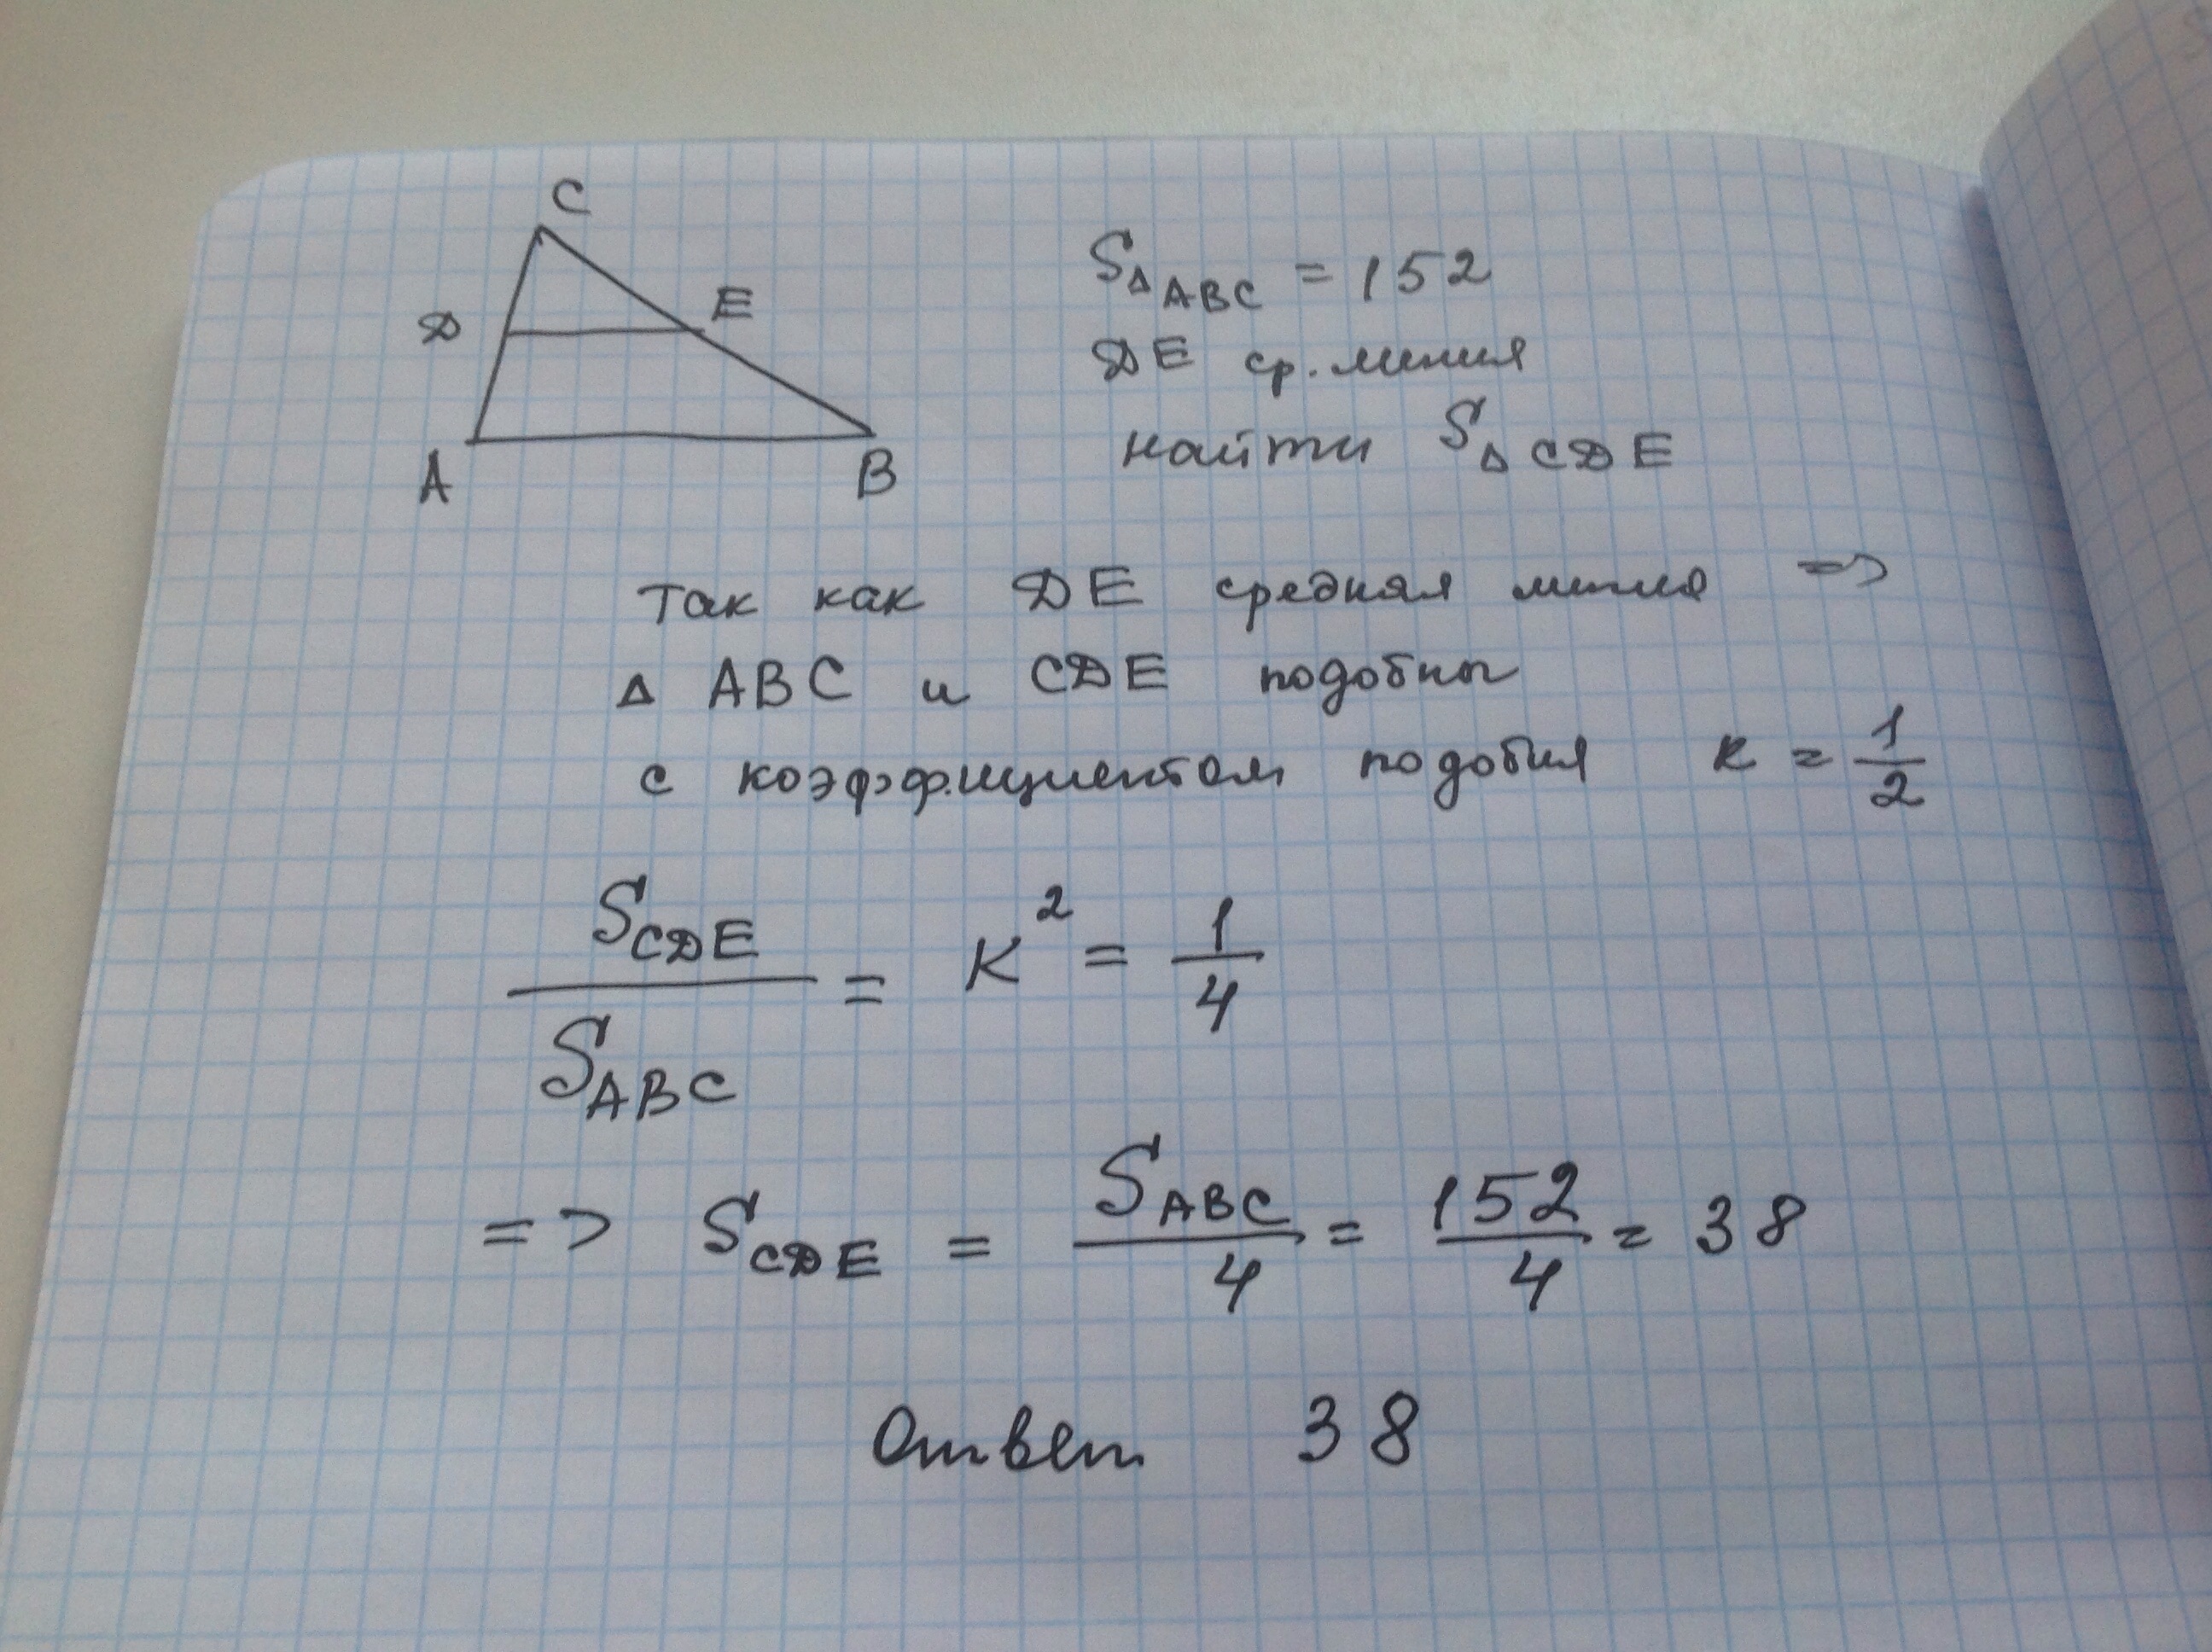 C
D E
A B
S△ABC = 152
DE ср. линия
найти S△CDE
Так как DE средняя линия =>
△ ABC и CDE подобны
с коэффициентом подобия к = 1/2
S_CDE / S_ABC = K² = 1/4
=> S_CDE = S_ABC / 4 = 152 / 4 = 38
Ответ 38